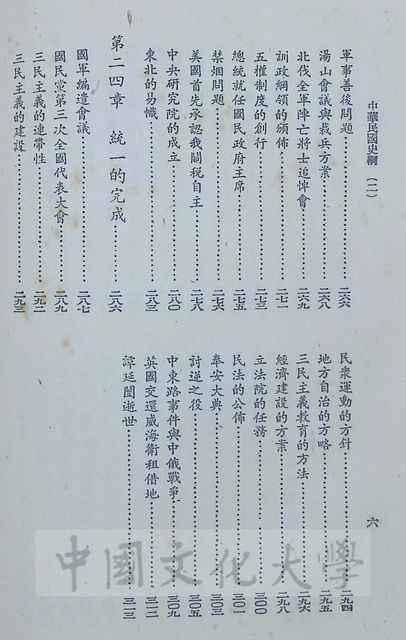 中華民國史綱（二）
六
軍事善後問題……二六六
湯山會議與裁兵方案……二六八
北伐全軍陣亡將士追悼會……二六九
訓政綱領的頒佈……二七一
五權制度的創行……二七三
總統就任國民政府主席……二七五
禁烟問題……二七六
美國首先承認我關稅自主……二七八
中央研究院的成立……二八〇
東北的易幟……二八三
第二四章 統一的完成……二八六
國軍編遣會議……二八七
國民黨第三次全國代表大會……二八九
三民主義的連帶性……二九二
三民主義的建設……二九三
民衆運動的方針……二九四
地方自治的方略……二九五
三民主義教育的方法……二九六
經濟建設的方案……二九八
立法院的任務……三〇〇
民法的公佈……三〇一
奉安大典……三〇三
討逆之役……三〇五
中東路事件與中俄戰爭……三〇九
英國交還威海衛租借地……三一二
譚延闓逝世……三一三
中國文化大學